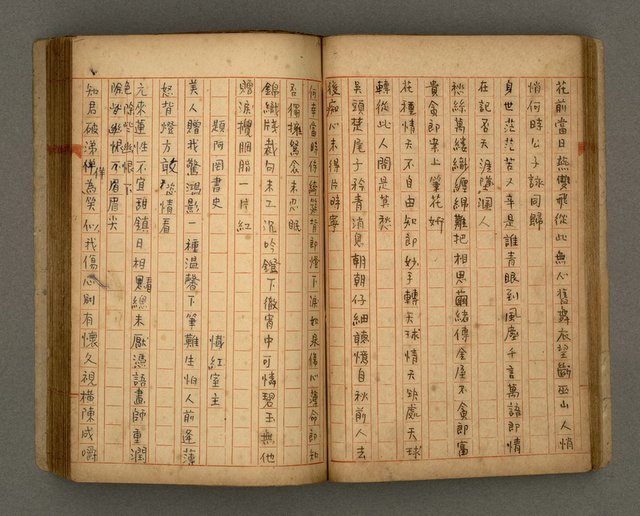 花前當日燕雙飛從此無心舊舞衣望斷巫山人悄
悄何時公子詠同歸
身世茫茫苦人幸是誰青眼到風塵千言萬語即情
在記否天涯墮溷人
愁絲萬縷織纏綿難把相思繭緒傳金屋不貪即富
貴貪即案上筆花妍
在種情天不自由知即妙手轉天球情天欲處天球
轉從此人間是莫愁
吳頭楚尾子衿青消息朝朝仔細聽憶自秋前人去
後痴心未得片時寧
何幸當時侍綺筵背即燈下淚如泉傷心薄命即知
否獨擁鴛衾未忍眠
錦織牋裁句未工沉吟鐙下徹宵中可憐碧玉無他
贈淚攪胭脂一片紅
題阿罔書史 懺紅室主
美人贈我驚鴻影一種溫馨下筆難生怕人前逢薄
怒背燈方敢恣情看
元來蓮性不宜甜鎮日相看總未厭憑語畫師重潤
色除些幽恨下眉尖
知君破涕佯為笑似我傷心別有懷久視橫陳成嚼